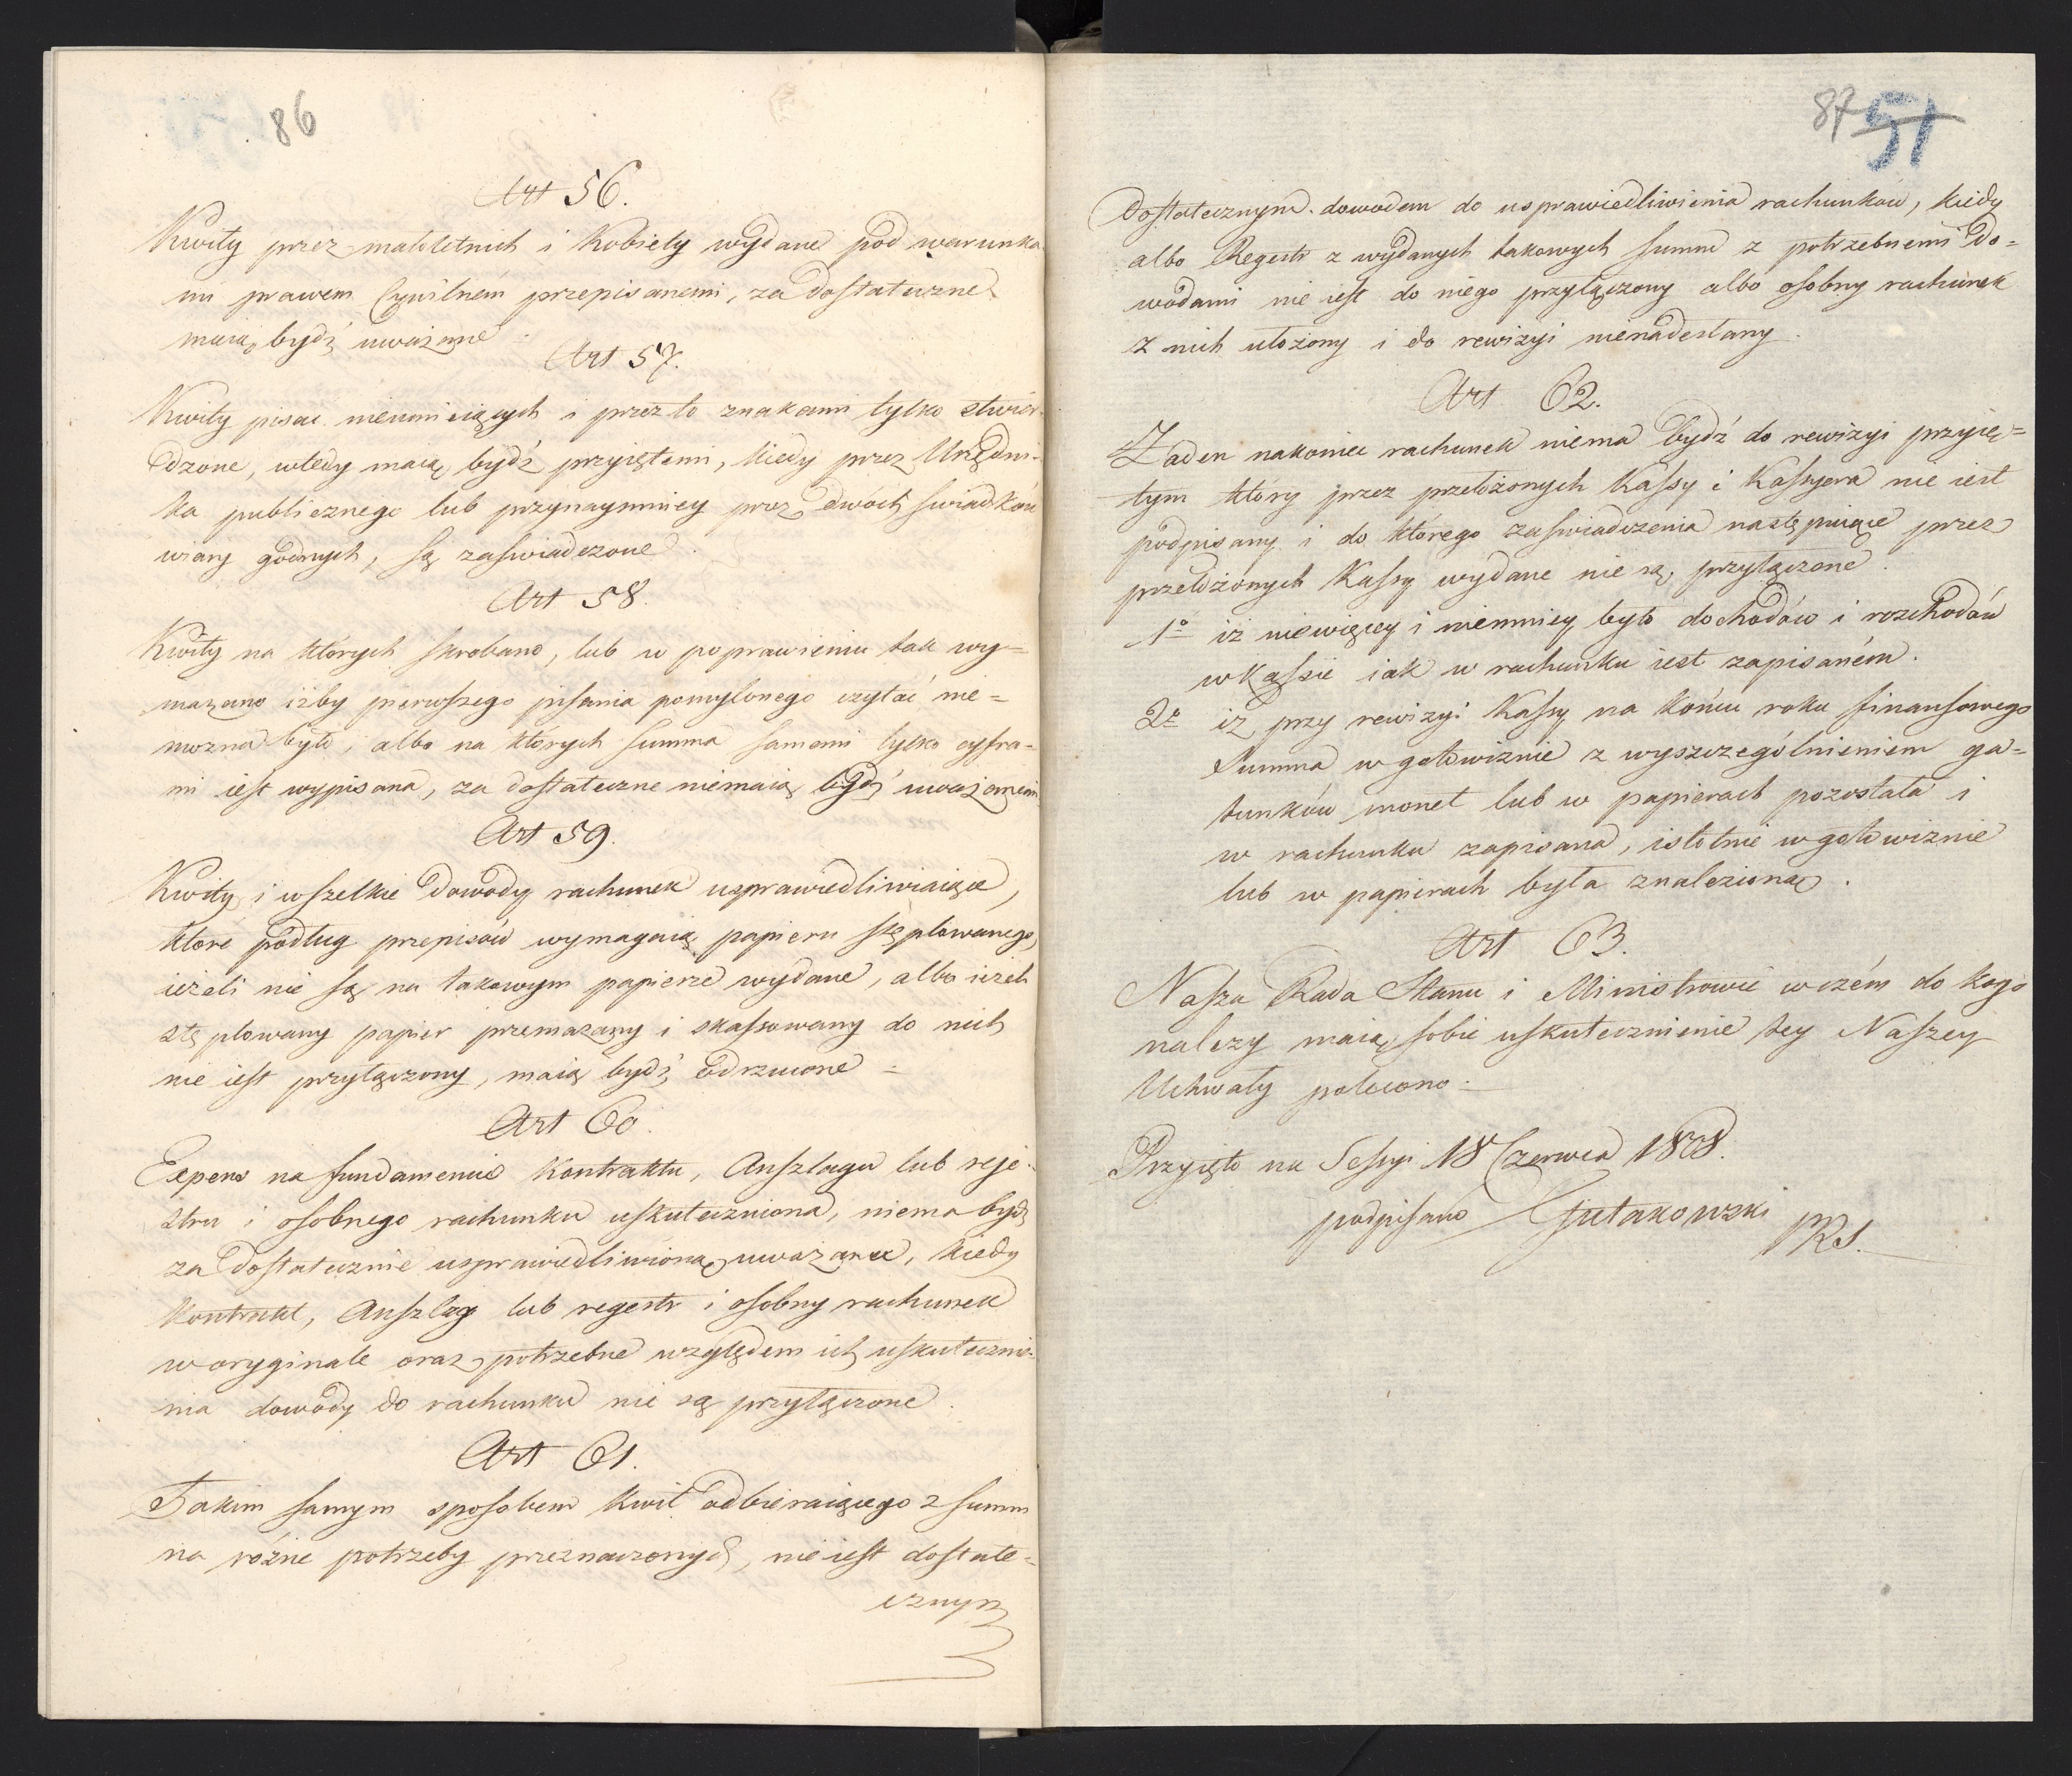 86
Art 56.
Kwity przez małoletnich i Kobiety wydane pod warunka
mi prawem Cywilném przepisanemi, za dostateczne
maią bydź uważane
Art 57.
Kwity pisać nieumieiących i przez to znakami tylko stwier-
dzone, wtedy maią bydź przyiętemi, kiedy przez Urzędni-
ka publicznego lub przynaymniey przez dwóch swiadków
wiary godnych, są zaswiadczone.
Art 58.
Kwity na których skrobano, lub w poprawieniu tak wy=
mazano iżby pierwszego pisania pomylonego czytać nie=
mozna było, albo na których summa samemi tylko cyfra=
mi iest wypisana, za dostateczne niemaią bydź uważanemi
Art 59.
Kwity i wszelkie dowody rachunek usprawiedliwiaiące,
które podług przepisów wymagaią papieru stęplowanego,
ieżeli nie są na takowym papierze wydane, albo ieżeli
stęplowany papier przemazany i skassowany do nich
nie iest przyłączony, maią bydź odrzucone =
Art 60.
Expens na fundamencie Kontraktu, Anszlagu lub reje-
stru i osobnego rachunku uskuteczniona, niema bydź
za dostatecznie usprawiedliwioną uważana, kiedy
Kontrakt, Anszlag lub regestr i osobny rachunek
w oryginale oraz potrzebne względem ich uskutecznie-
nia dowody do rachunku nie są przyłączone.
Art 61.
Takim samym sposobem Kwit odbieraiącego z summ
na rożne potrzeby przeznaczonych, nie iest dostate=
cznym
87 51
Dostatecznym dowodem do usprawiedliwienia rachunków, kiedy
albo Regestr z wydanych takowych summ z potrzebnemi do=
wodami nie iest do niego przyłączony albo osobny rachunek
z nich ułożony i do rewizyi nienadesłany.
Art 62.
Zaden nakoniec rachunek niema bydź do rewizyi przyię=
tym który przez przełożonych Kassy i Kassyera nie iest
podpisany i do którego zaswiadczenia następuiące przez
przełożonych Kassy wydane nie są przyłączone.
1º iż niewięcey i niemniey było dochodów i rozchodów
w Kassie iak w rachunku iest zapisaném.
2º iż przy rewizyi Kassy na końcu roku finansowego
Summa w gotowiznie z wyszczególnieniem ga=
tunków monet lub w papierach pozostała i
w rachunku zapisana, istotnie w gotowiznie
lub w papierach była znalezioną.
Art 63.
Nasza Rada Stanu i Ministrowie w czém do kogo
nalezy maią sobie uskutecznienie tey Naszey
Uchwały polecono.
Przyięto na Sessyi 18 Czerwca 1808.
podpisano Gutakowski
PRS.